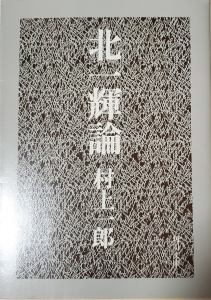 北一輝論
村上一郎